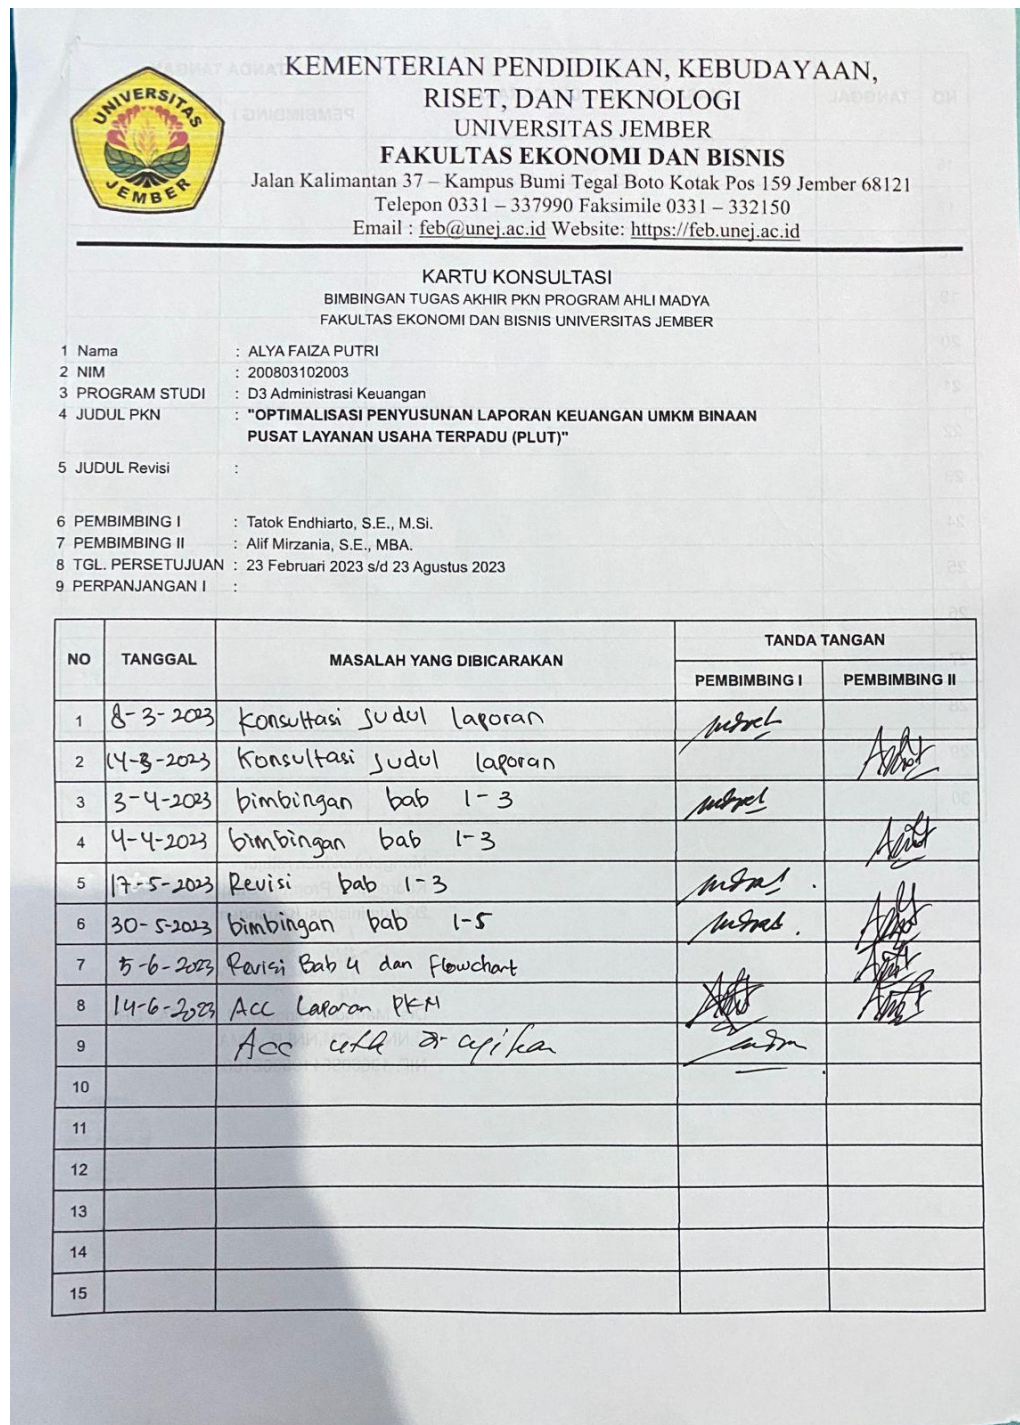 UNIVERSITAS
JEMBER
KEMENTERIAN PENDIDIKAN, KEBUDAYAAN,
RISET, DAN TEKNOLOGI
UNIVERSITAS JEMBER
FAKULTAS EKONOMI DAN BISNIS
Jalan Kalimantan 37 – Kampus Bumi Tegal Boto Kotak Pos 159 Jember 68121
Telepon 0331 – 337990 Faksimile 0331 – 332150
Email : feb@unej.ac.id Website: https://feb.unej.ac.id
KARTU KONSULTASI
BIMBINGAN TUGAS AKHIR PKN PROGRAM AHLI MADYA
FAKULTAS EKONOMI DAN BISNIS UNIVERSITAS JEMBER
1 Nama : ALYA FAIZA PUTRI
2 NIM : 200803102003
3 PROGRAM STUDI : D3 Administrasi Keuangan
4 JUDUL PKN : "OPTIMALISASI PENYUSUNAN LAPORAN KEUANGAN UMKM BINAAN
PUSAT LAYANAN USAHA TERPADU (PLUT)"
5 JUDUL Revisi :
6 PEMBIMBING I : Tatok Endhiarto, S.E., M.Si.
7 PEMBIMBING II : Alif Mirzania, S.E., MBA.
8 TGL. PERSETUJUAN : 23 Februari 2023 s/d 23 Agustus 2023
9 PERPANJANGAN I :
NO TANGGAL MASALAH YANG DIBICARAKAN TANDA TANGAN
PEMBIMBING I PEMBIMBING II
1 8-3-2023 Konsultasi Judul laporan
2 14-3-2023 Konsultasi Judul laporan
3 3-4-2023 bimbingan bab 1-3
4 4-4-2023 bimbingan bab 1-3
5 17-5-2023 Revisi bab 1-3
6 30-5-2023 bimbingan bab 1-5
7 5-6-2023 Revisi Bab 4 dan Flowchart
8 14-6-2023 Acc Laporan PKN
9 Acc
10
11
12
13
14
15